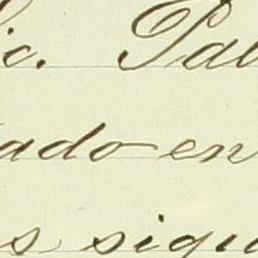 ic. Pab
ado en
s sigu